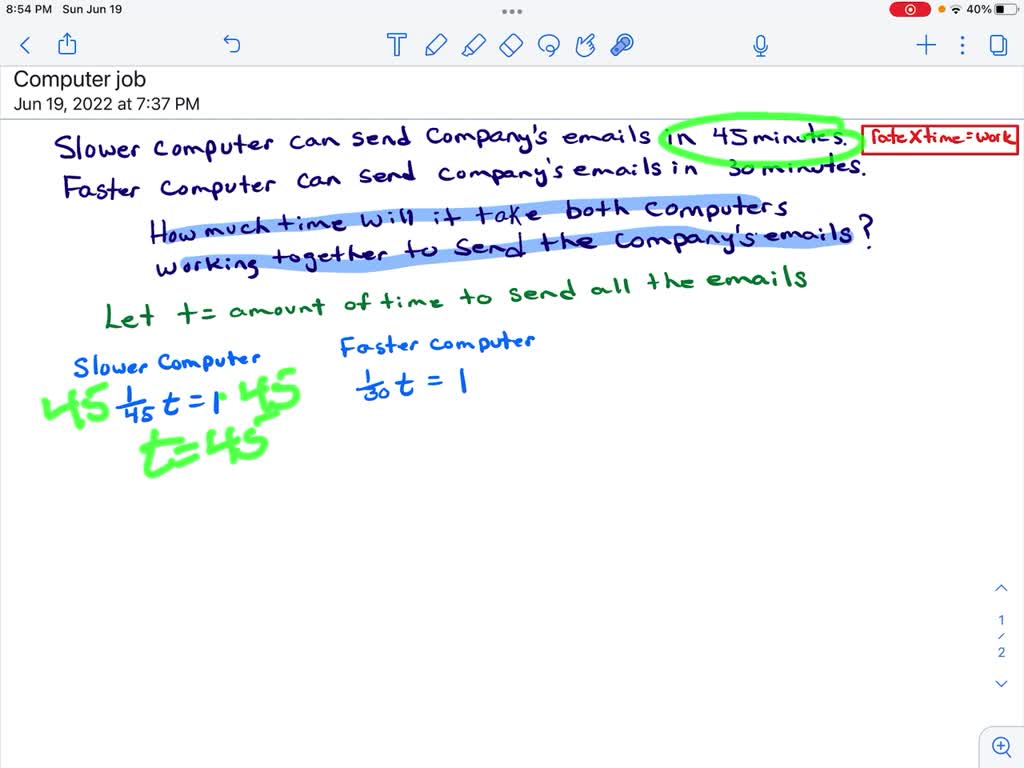 8:54 PM Sun Jun 19
40%
Computer job
Jun 19, 2022 at 7:37 PM
Slower computer can send Company's emails in 45 minutes.
rate X time = work
Faster Computer can send company's emails in 30 minutes.
How much time will it take both computers
working together to send the company's emails?
Let t = amount of time to send all the emails
Slower Computer
Faster computer
45 1/45 t = 1 · 45
1/30 t = 1
t = 45
1
/
2